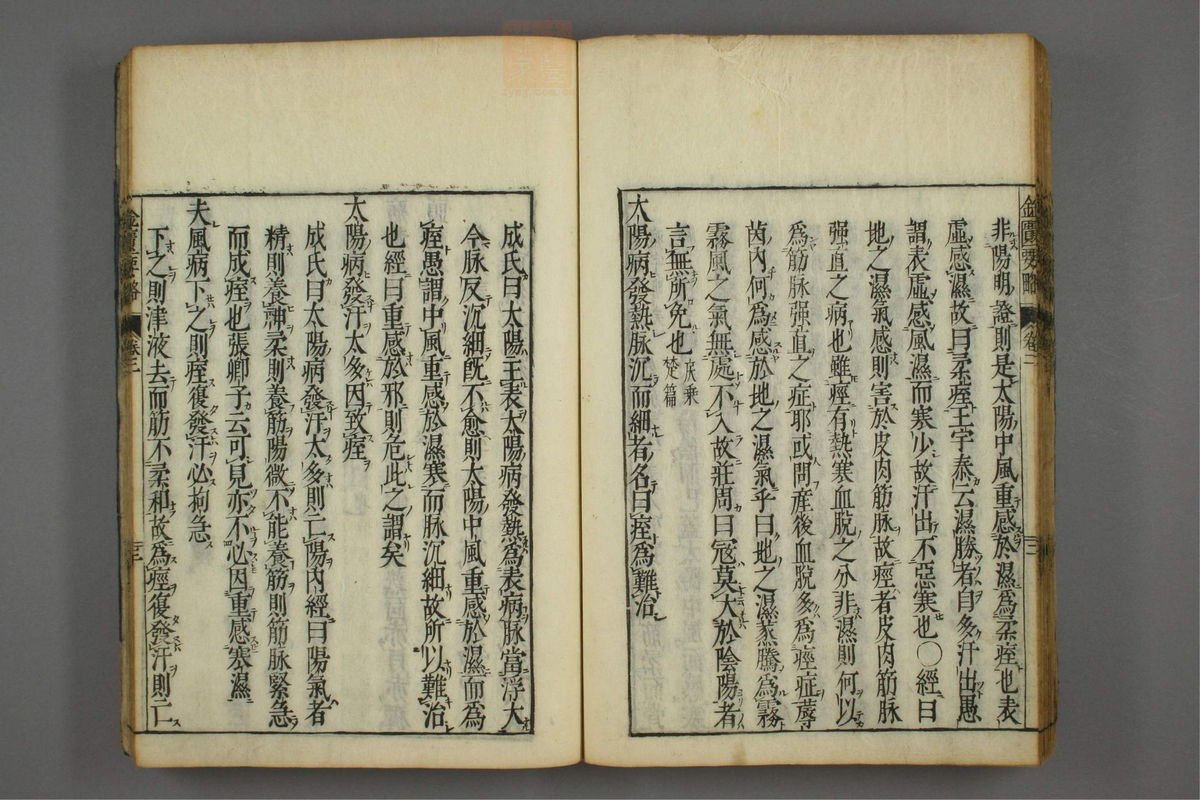 金匱要略 卷二 三
非陽明證則是太陽中風重感於濕爲柔痙也表
虛感濕故曰柔痙王宇泰云濕勝者自多汗出愚
謂表虛感風濕而寒少故汗出不惡寒也〇經曰
地之濕氣感則害於皮肉筋脉故痙者皮肉筋脉
强直之病也雖痙有熱寒血脫之分非濕則何以
爲筋脉强直之症耶或問産後血脫多爲痙症蓐
茵內何爲感於地之濕氣乎曰地之濕蒸騰爲霧
霧風之氣無處不入故莊周曰寇莫大於陰陽者
言無所免也庚桑楚篇
太陽病發熱脉沉而細者名曰痙爲難治
成氏曰太陽主表太陽病發熱爲表病脉當浮大
今脉反沉細既不愈則太陽中風重感於濕而爲
痙愚謂中風重感於濕寒而脉沉細故所以難治
也經曰重感於邪則危此之謂矣
太陽病發汗太多因致痙
成氏曰太陽病發汗太多則亡陽內經曰陽氣者
精則養神柔則養筋陽微不能養筋則筋脉緊急
而成痙也張卿子云可見亦不必因重感寒濕
夫風病下之則痙復發汗必拘急
下之則津液去而筋不柔和故爲痙復發汗則亡
金匱要略 卷二 三